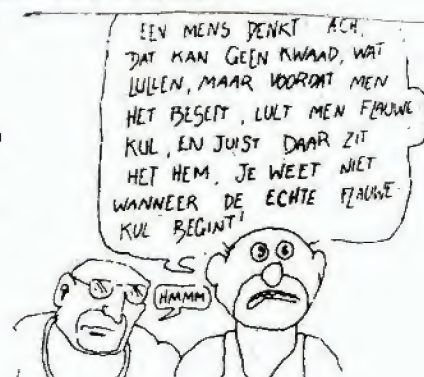 EEN MENS DENKT ACH,
DAT KAN GEEN KWAAD, WAT
LULLEN, MAAR VOORDAT MEN
HET BESEFT, LULT MEN FLAUWE
KUL, EN JUIST DAAR ZIT
HET HEM, JE WEET NIET
WANNEER DE ECHTE FLAUWE
KUL BEGINT!
HMMM